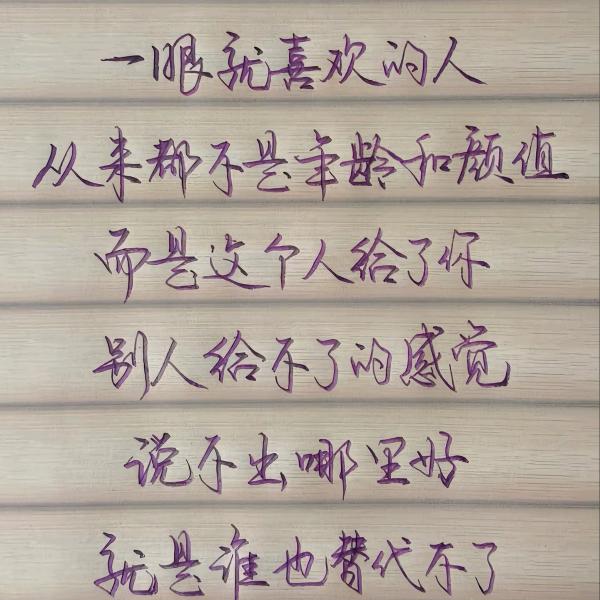 一眼就喜欢的人
从来都不是年龄和颜值
而是这个人给了你
别人给不了的感觉
说不出哪里好
就是谁也替代不了